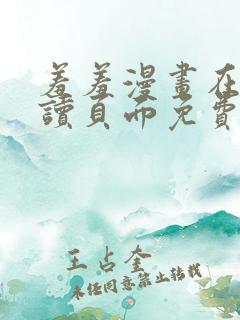 羞羞漫畫在
讀頁面免費
王占奎
未经同意禁止转载